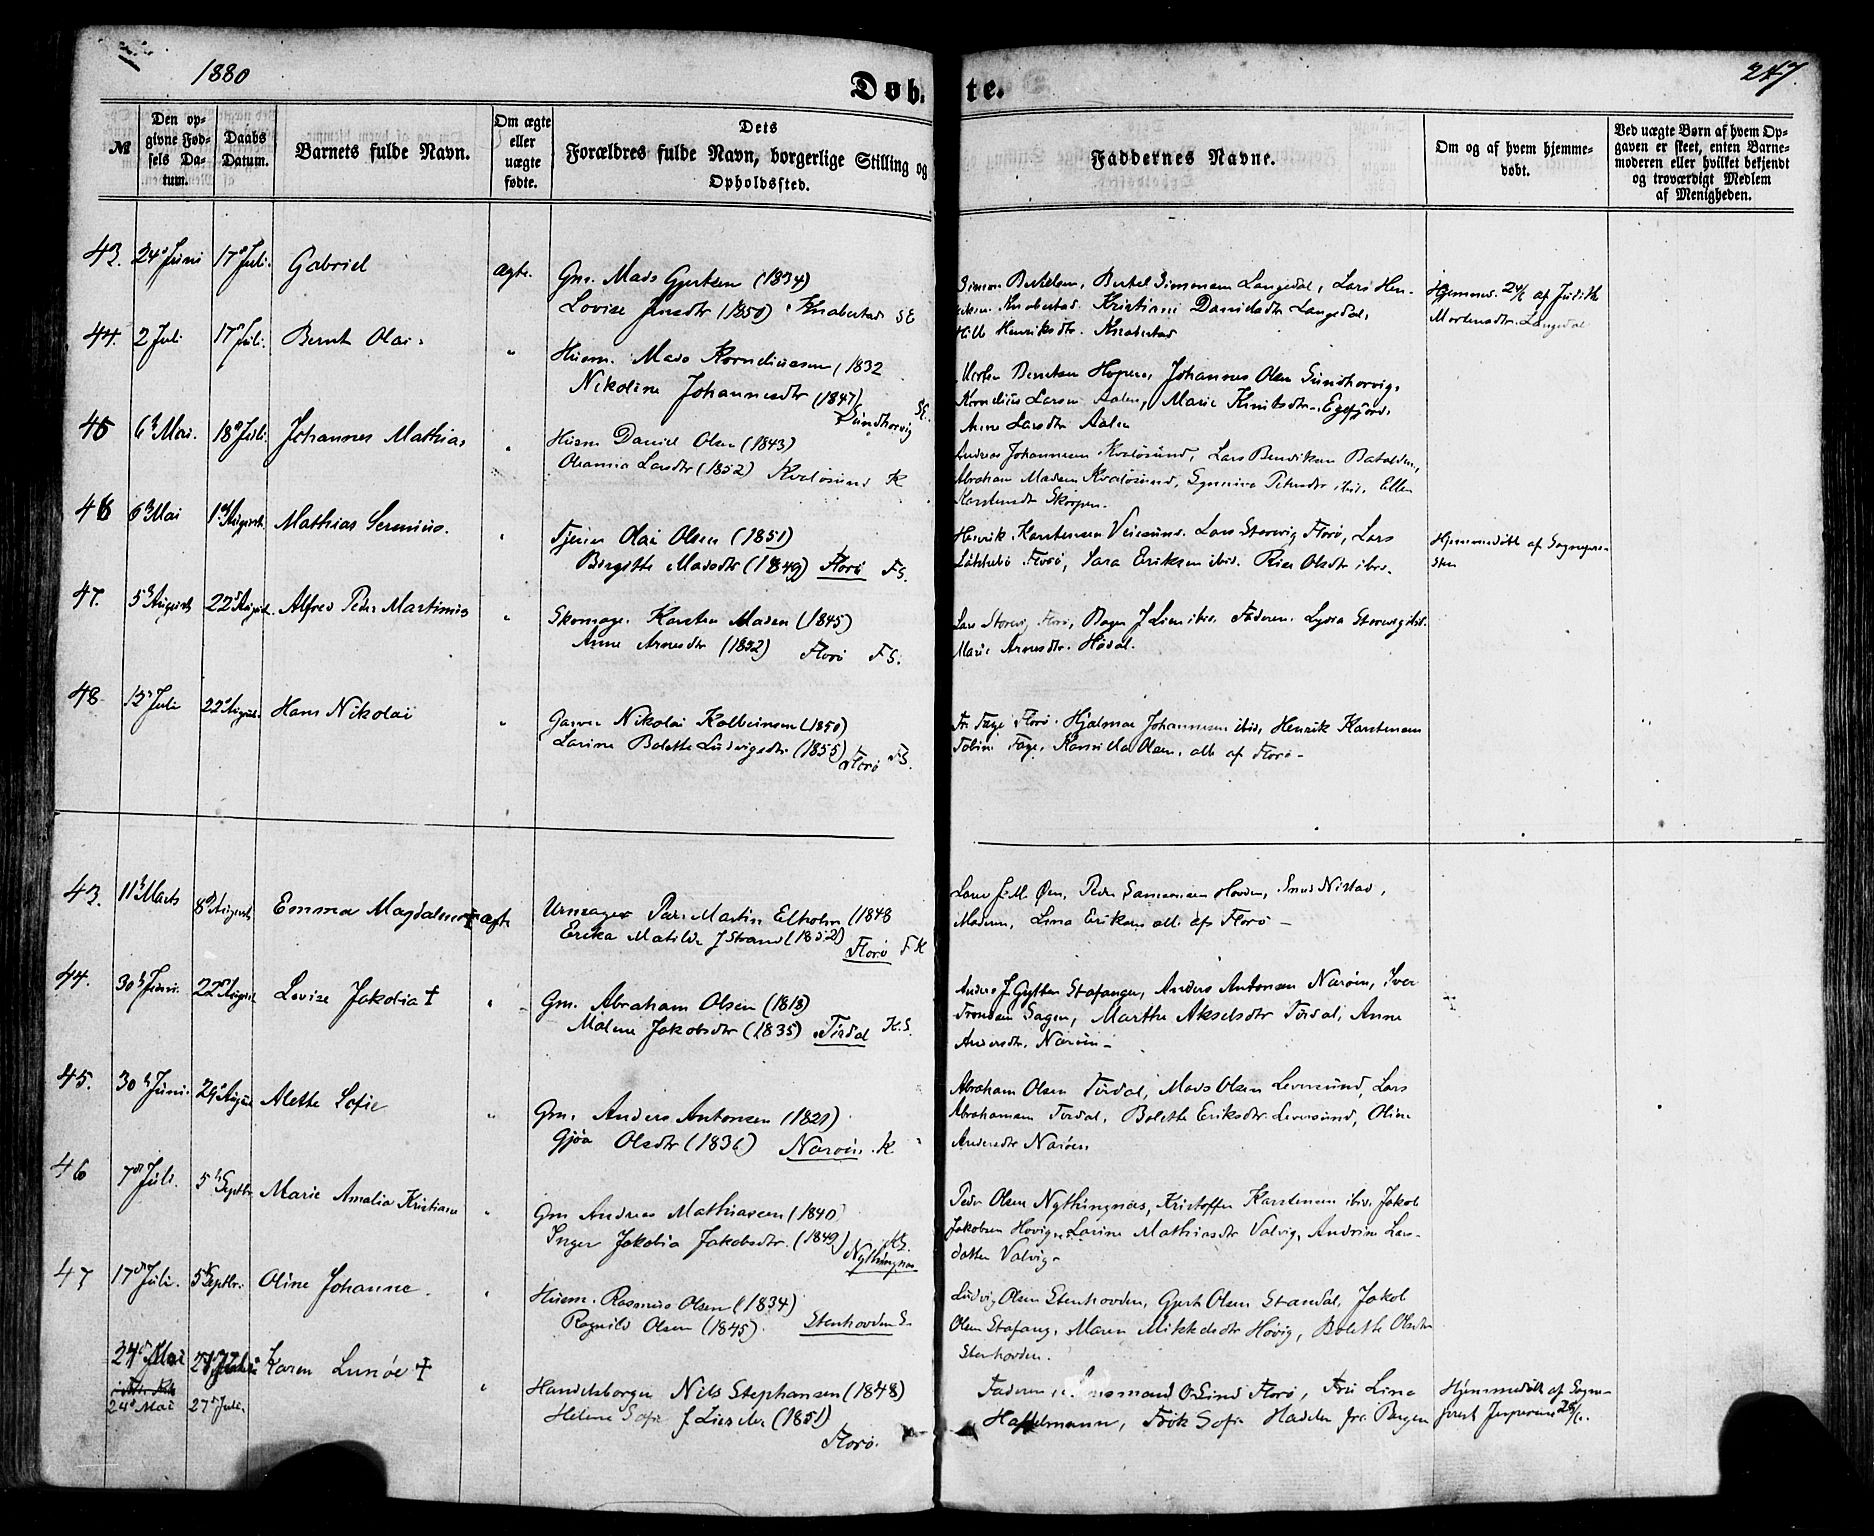 1880
Døb-
te.
247.
№
Den op-
givne Fød-
sels Da-
tum.
Daabs
Datum.
Barnets fulde Navn.
Om ægte
eller
uægte
fødte.
Dets
Forældres fulde Navn, borgerlige Stilling og
Opholdssted.
Faddernes Navne.
Om og af hvem hjemme-
døbt.
Ved uægte Børn af hvem Op-
gaven er skeet, enten Barne-
moderen eller hvilket bekjendt
og troværdigt Medlem
af Menigheden.
43. 24de Juni 17de Juli. Gabriel ægte. Gm. Mads Gjertsen (1834)
Lovise Jensdtr (1850) Knabestad SE
Simon Bertelsen, Bertel Simonsen Langedal, Lars Hen-
riksen Knabestad. Kristiane Danielsdtr Langedal,
Henriksdtr. Knabestad
Hjemmed. 24/6 af Judith
Mortensdtr. Langedal
44. 2 Juli 17de Juli. Bernt Olai. " Husm. Mads Korneliussen (1832
Nikoline Johannesdtr (1847)
Sundhorvig SE.
Berntsen Hopen, Johannes Olsen Sundhorvig,
Kornelius Larsen Aalen, Marie Knudsdtr. Egefjord.
Anne Larsdtr Aalen
45 6te Mai. 18de Juli. Johannes Mathias " Husm Daniel Olsen (1843)
Oleanna Larsdtr (1852) Kvalosund K
Andreas Johannesen Kvalosund, Lars Bendiksen Batalden,
Abraham Madsen Kvalosund, Synneve Petersdtr ibid. Ellen
Karstensdtr Skorpen.
46 6te Mai 1ste August Mathias Severinus. " Olai Olsen (1851)
Birgitte Madsdtr (1849) Florø FS.
Henrik Karstensen Veiesund. Lars Storevig Florø, Lars
Florø, Sara Eriksen ibid. Olsdtr ibid.
Hjemmedøbt af Sognepre-
sten
47. 5te August 22de August. Alfred Peder Martinus " Skomager Karsten Madsen (1845)
Anne Arnesdtr (1852) Florø FS.
Lars Storevig Florø, J Lien ibid. Faderen. Lydia Storevig ibid.
Marie Arnesdtr. Hødal.
48 12 Juli 22de August. Hans Nikolai " Garver Nikolai Kolbeinsen (1850)
Larine Bolette Ludvigsdtr (1855) Florø FS.
Fr. Faye Florø. Hjalmar Johannesen ibid, Henrik Karstensen
Faye, Kamilla Olsen, alle af Florø -
43. 11te Marts 8de August Emma Magdalene + ægte Urmager Martin Elholm (1848
Erika Matilde J Strand (1852)
Florø F K
Lars J. M. Øen, Peder Samsonsen Hovden, Nistad,
Madsen, Lina Eriksen alle af Florø -
44. 30te Juni. 22de August Lovise Jakobia + " Gm. Abraham Olsen (1818)
Malene Jakobsdtr (1835) Tirdal K.S.
Anders J Gytten Stafanger, Anders Antonsen Narøen, Iver
Trondsen Sagen, Marthe Akselsdtr Tirdal, Anne
Andersdtr. Narøen -
45. 30te Juni. 29de August Alette Sofie " Gm. Anders Antonsen (1821)
Gjøa Olsdtr (1836) Narøen. K.
Abraham Olsen Tirdal, Mads Olsen Leversund, Lars
Abrahamsen Tirdal, Bolette Eriksdtr Leversund, Oline
Andersdtr Narøen
46 7de Juli. 5te Septbr Marie Amalia Kristiane " Gm Andreas Mathiasen (1840)
Inger Jakobia Jakobsdtr. (1849) KS.
Nyttingnæs
Peder Olsen Nyttingnæs, Kristoffer Karstensen ibid. Jakob
Jakobsen Høvig, Larine Mathiasdtr Valvig, Andrine Lars-
datter Valvig -
47 17de Juli. 5te Septbr. Oline Johanne. " Husm. Rasmus Olsen (1834)
Ragnild Olsen (1845) Stenhovden S.
Ludvig Olsen Stenhovden, Gjert Olsen Standal, Jakob
Olsen Stafang, Maren Mikkelsdtr Høvig, Bolette Olsdtr
Stenhovden.
24de Mai 27de Juli Karen Lunøe + " Handelsborger Nils Stephansen (1848)
24de Mai 27de Juli. Helene Sofie (1851)
Florø.
Faderen, Lind Florø, Fru Lina
Hasselmann, Frøk Sofie fra Bergen
Hjemmedøbt af Sogne-
prest Jespersen